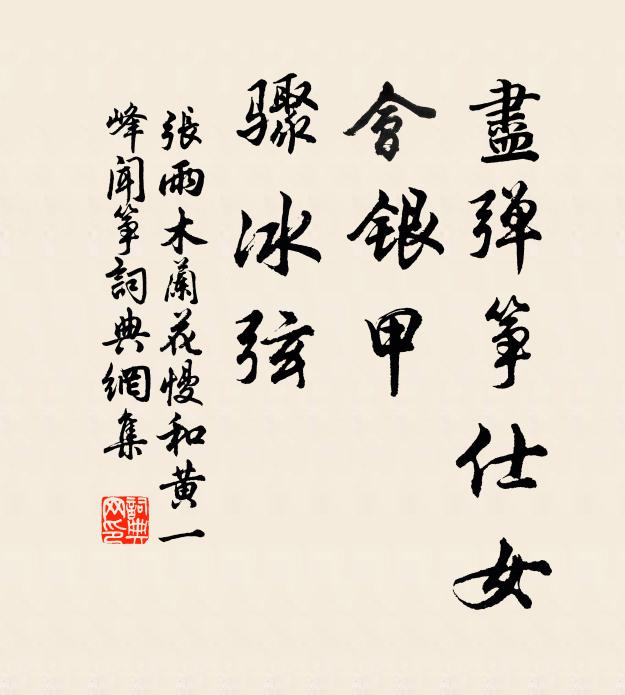 盡彈箏仕女
會銀甲
驟冰弦
張雨木蘭花慢和黃一
峰聞箏詞典網集
詞典
网印